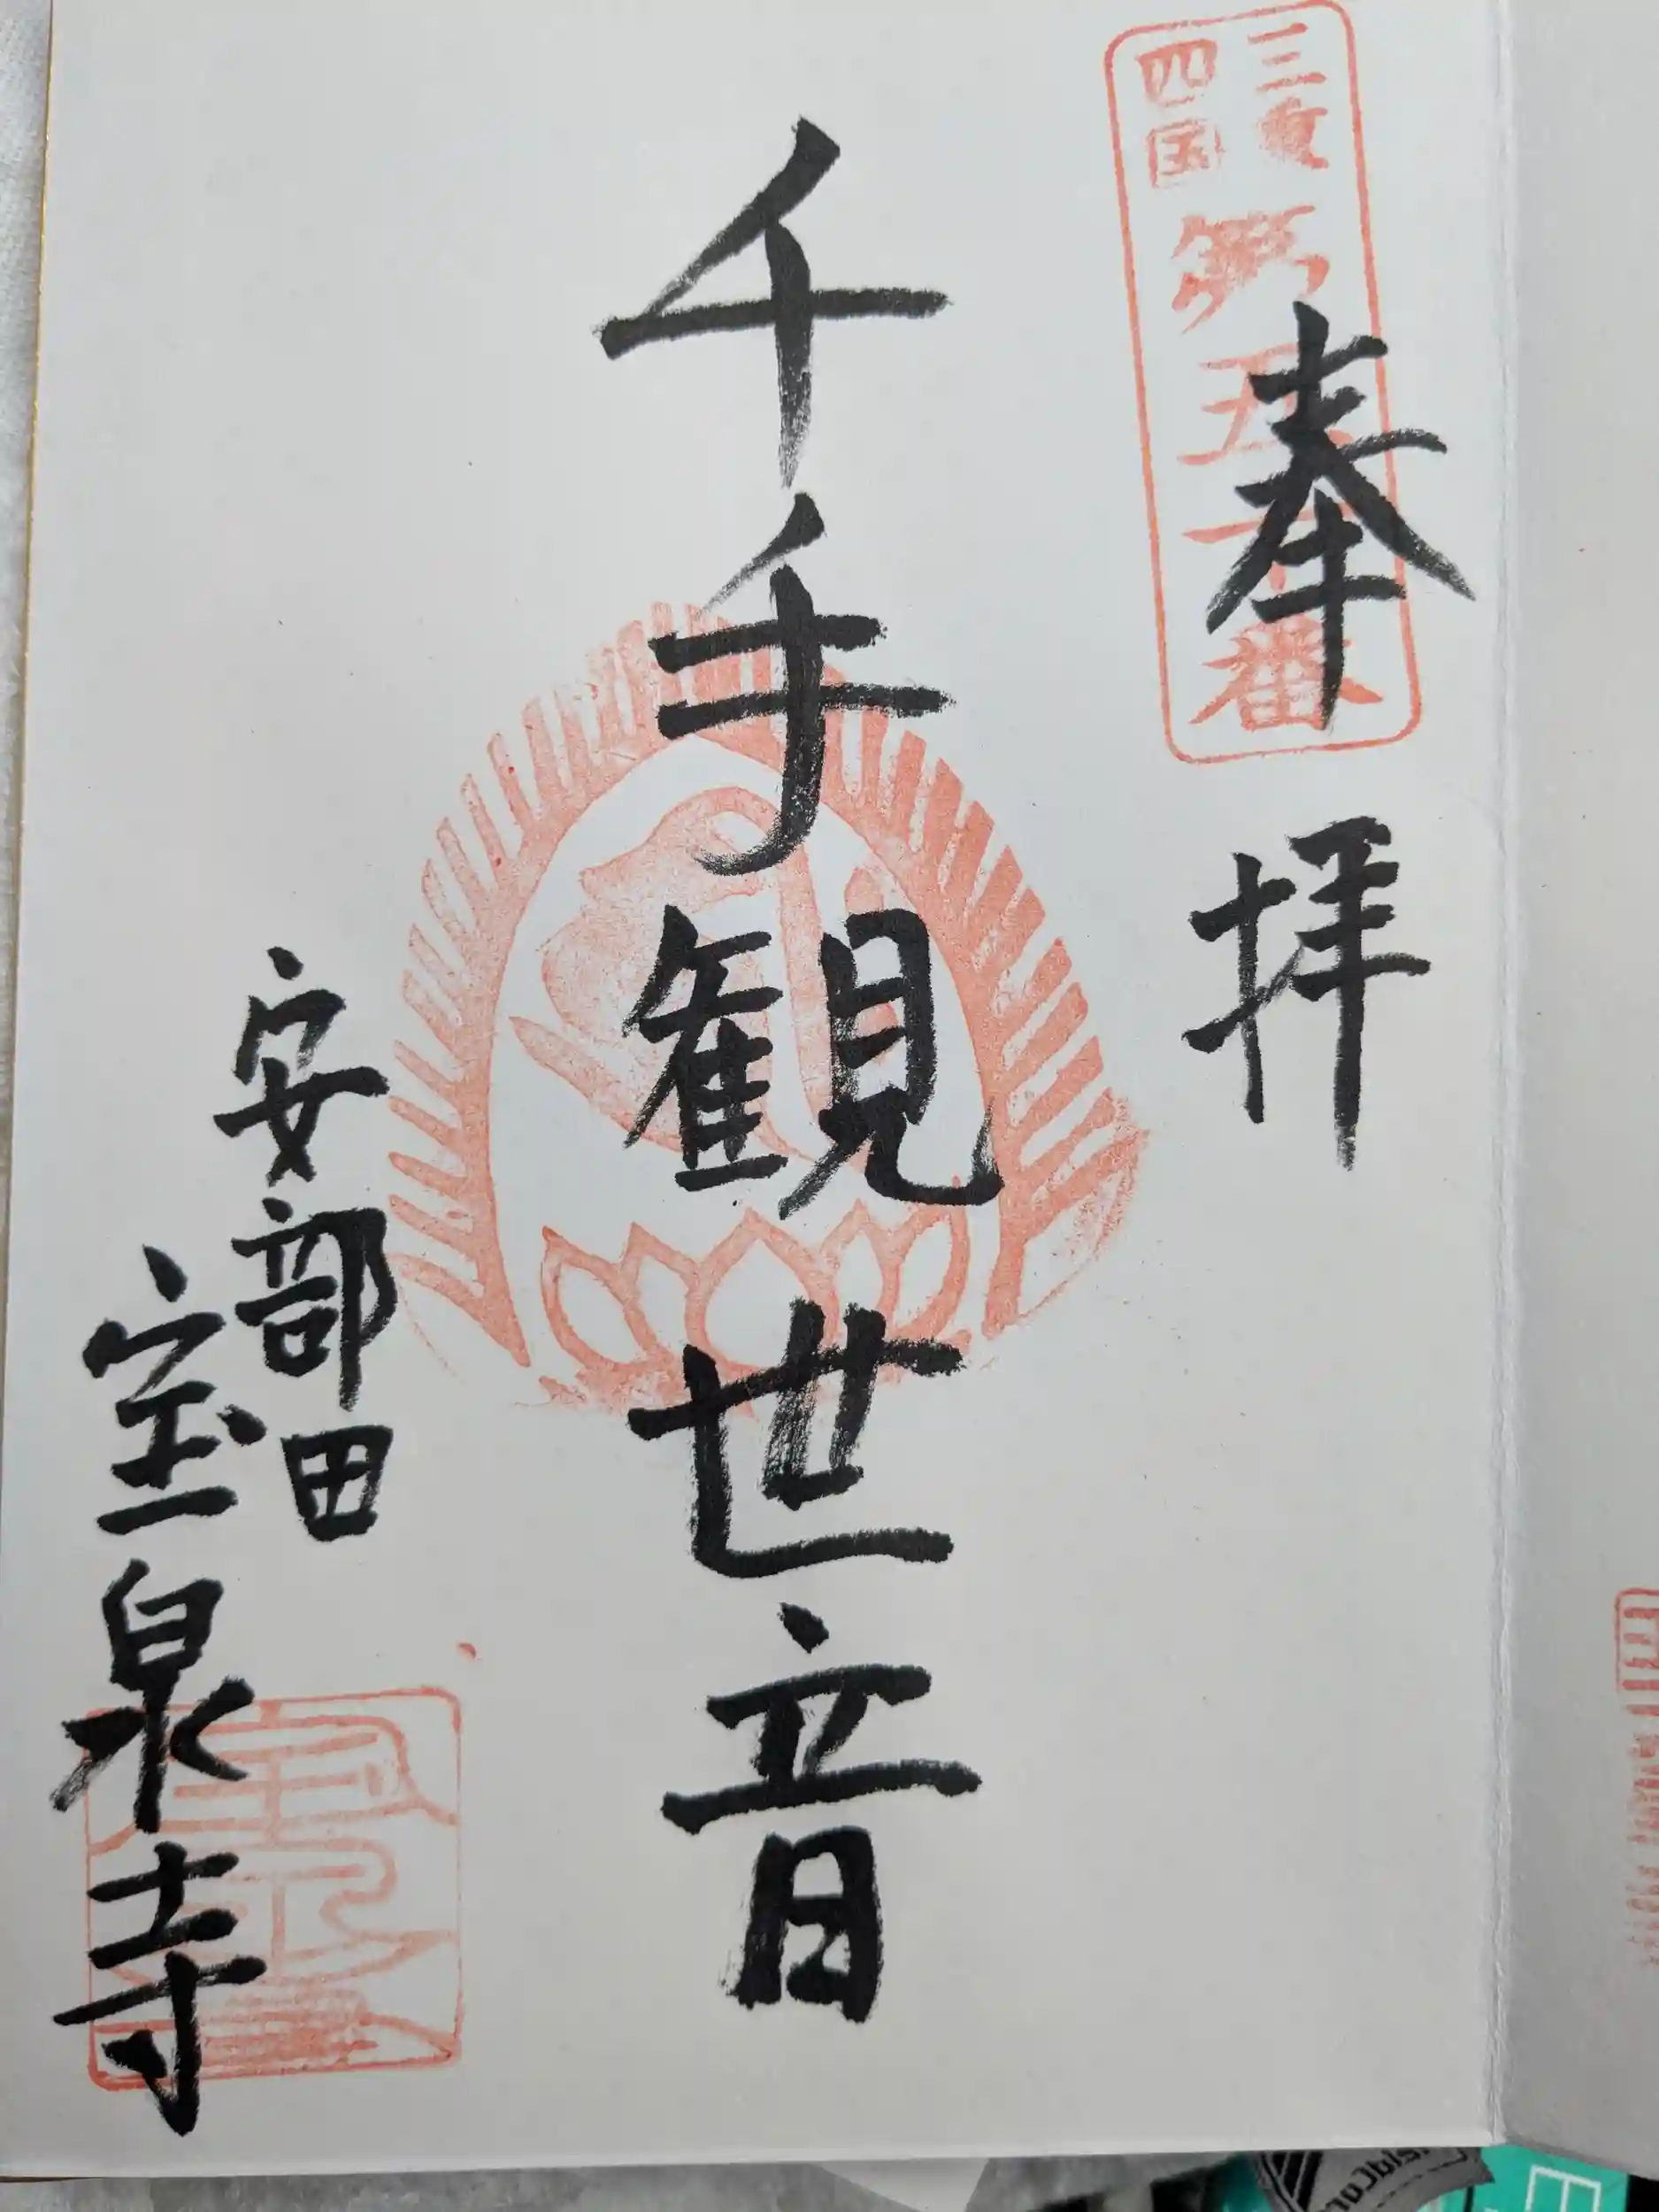 三重
四国
第五十一番
奉拝
千手観世音
安部田
宝泉寺